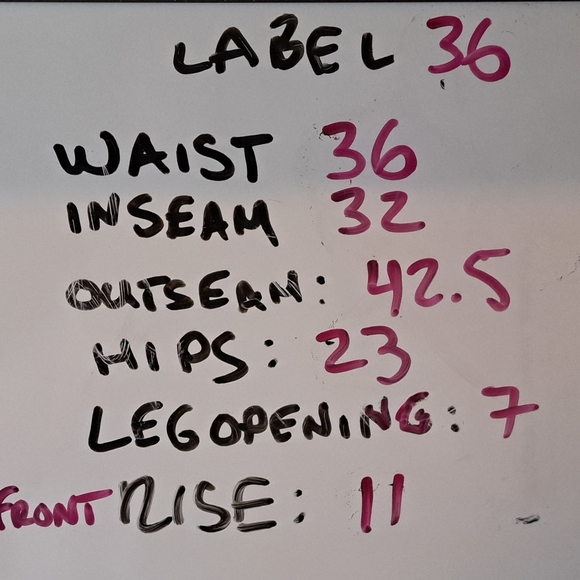 LABEL 36
WAIST 36
INSEAM 32
OUTSEAM: 42.5
HIPS: 23
LEG OPENING: 7
FRONT RISE: 11